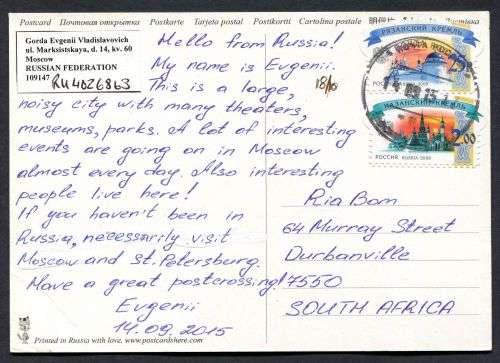 Postcard Почтовая открытка Postkarte Tarjeta postal Postkortti Cartolina postale
Gorda Evgenii Vladislavovich
ul. Marksistskaya, d. 14, kv. 60
Moscow
RUSSIAN FEDERATION
109147
RU4026863
Hello from Russia!
My name is Evgenii.
This is a large,
noisy city with many theaters,
museums, parks. A lot of interesting
events are going on in Moscow
almost every day. Also interesting
people live here!
If you haven't been in
Russia, necessarily visit
Moscow and St. Petersburg.
Have a great postcrossing!
Evgenii
14.09.2015
18/10
РЯЗАНСКИЙ КРЕМЛЬ
КАЗАНСКИЙ КРЕМЛЬ
2.00
РОССИЯ RUSSIA 2009
Ria Bom
64 Murray Street
Durbanville
7550
SOUTH AFRICA
Printed in Russia with love, www.postcardshere.com